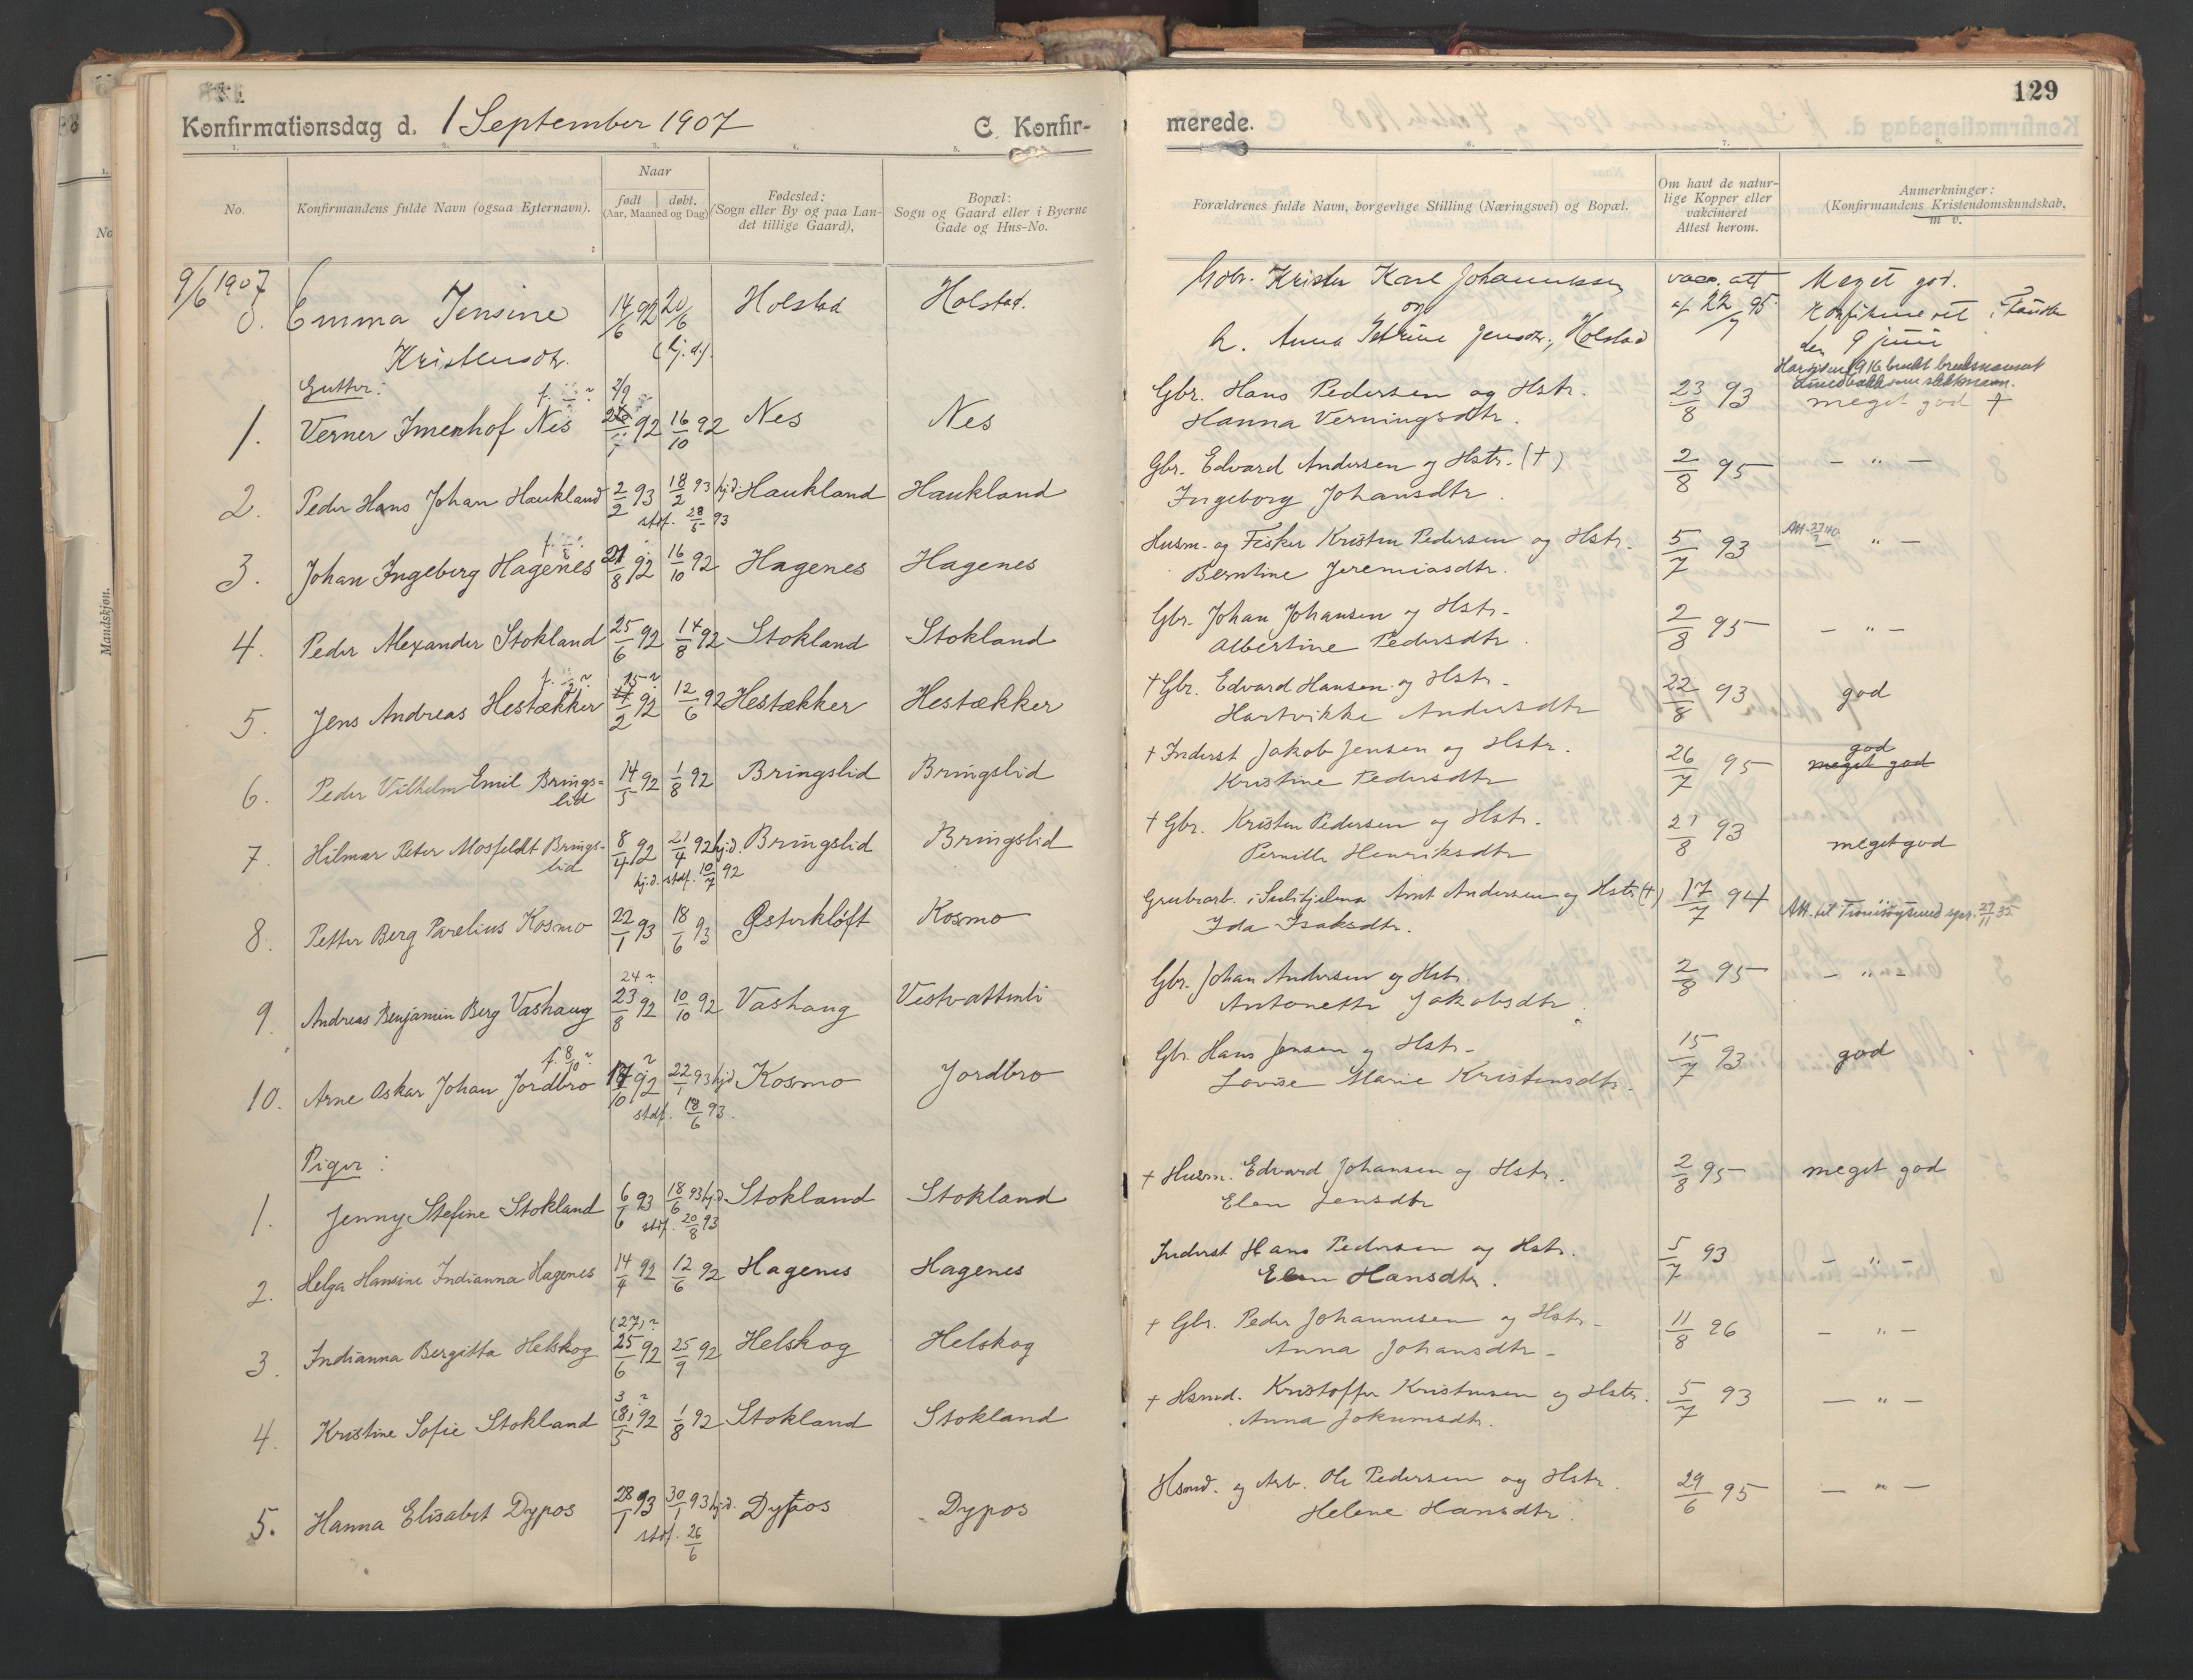 129
Konfirmationsdag d. 1 September 1907 C. Konfirmerede.
1. 2. 3. 4. 5. 6. 7. 8.
No.
Konfirmandens fulde Navn (ogsaa Efternavn).
Naar
født døbt.
(Aar, Maaned og Dag)
Fødested:
(Sogn eller By og paa Landet tillige Gaard),
Bopæl:
Sogn og Gaard eller i Byerne
Gade og Hus-No.
Forældrenes fulde Navn, borgerlige Stilling (Næringsvei) og Bopæl.
Om havt de naturlige Kopper eller
vakcineret
Attest herom.
Anmerkninger:
(Konfirmandens Kristendomskundskab,
m v.
9/6 1907 Emma Jensine 14/6 92 20/6 Holstad Holstad. Gbr. Karl Johannessen vacc. att Meget god.
Kristensdtr. (hj.d.) og af 22/7 95 Konfirmeret i
h. Anna Petrine Jensdtr., Holstad den 9 juni
Gutter:
Har siden 1916 brukt bruksnavnet
som slektsnavn.
1. Verner Imenhof Nes 2/9 92 16/10 92 Nes Nes Gbr. Hans Pedersen og Hstr. 23/8 93 meget god +
Hanna Verningsdtr.
2. Peder Hans Johan Haukland 2/2 93 18/2 93 hjd. Haukland Haukland Gbr. Edvard Andersen og Hstr. (+) 2/8 95 – " –
stdf. 28/6 93 Ingeborg Johansdtr.
3. Johan Ingeberg Hagenes 21/8 92 16/10 92 Hagenes Hagenes Husm. og Fisker Kristen Pedersen og Hstr. 5/7 93 – " –
Berntine Jeremiasdtr.
4. Peder Alexander Stokland 25/6 92 14/8 92 Stokland Stokland Gbr. Johan Johansen og Hstr. 2/8 95 – " –
Albertine Pedersdtr.
5. Jens Andreas Hestækker 15/2 92 12/6 92 Hestækker Hestækker + Gbr. Edvard Hansen og Hstr. 22/8 93 god
Hartvikke Andersdtr
6. Peder Vilhelm Emil Bringslid 14/5 92 1/8 92 Bringslid Bringslid + Inderst Jakob Jensen og Hstr. 26/7 95 god
meget god
Kristine Pedersdtr
7. Hilmar Peter Mosfeldt Bringslid 8/4 92 21/4 92 hj.d. Bringslid Bringslid + Gbr. Kristen Pedersen og Hstr. 21/8 93 meget god
hj.d. stdf. 10/7 92 Pernille Henriksdtr
8. Petter Berg Parelius Kosmo 22/1 93 18/6 93 Østerkløft Kosmo Grubearb. i Sulitjelma Arnt Andersen og Hstr. (+) 17/7 94 Att. til
Ida Isaksdtr.
24
9. Andreas Benjamin Berg Vashaug 23/8 92 10/10 92 Vashaug Vestvattnli Gbr. Johan Andersen og Hstr. 2/8 95 – " –
Antonette Jakobsdtr.
f. 8/10
10. Arne Oskar Johan Jordbro 17/10 92 22/1 93 hjd Kosmo Jordbro Gbr. Hans Jensen og Hstr. 15/7 93 god
stdf. 18/6 93. Lovise Marie Kristensdtr.
Piger:
1. Jenny Stefine Stokland 6/6 93 18/6 93 hj.d. Stokland Stokland + Husm. Edvard Johansen og Hstr. 2/8 95 meget god
stdf. 20/8 93 Elen Jensdtr
2. Helga Hansine Indianna Hagenes 14/4 92 12/6 92 Hagenes Hagenes Inderst Hans Pedersen og Hstr. 5/7 93 – " –
Elen Hansdtr.
(27)
3. Indianna Bergitta Helskog 25/6 92 25/9 92 Helskog Helskog + Gbr. Peder Johannesen og Hstr. 11/8 96 – " –
Anna Johansdtr
3
4. Kristine Sofie Stokland (8)/5 92 1/8 92 Stokland Stokland + Hsmd. Kristoffer Kristensen og Hstr. 5/7 93 – " –
Anna Jokumsdtr.
5. Hanna Elisabet Dypos 28/1 93 30/1 93 hj.d. Dypos Dypos Hsmd. og Arb. Ole Pedersen og Hstr. 29/6 95 – " –
stdf. 26/6 Helene Hansdtr.
Mandskjøn.